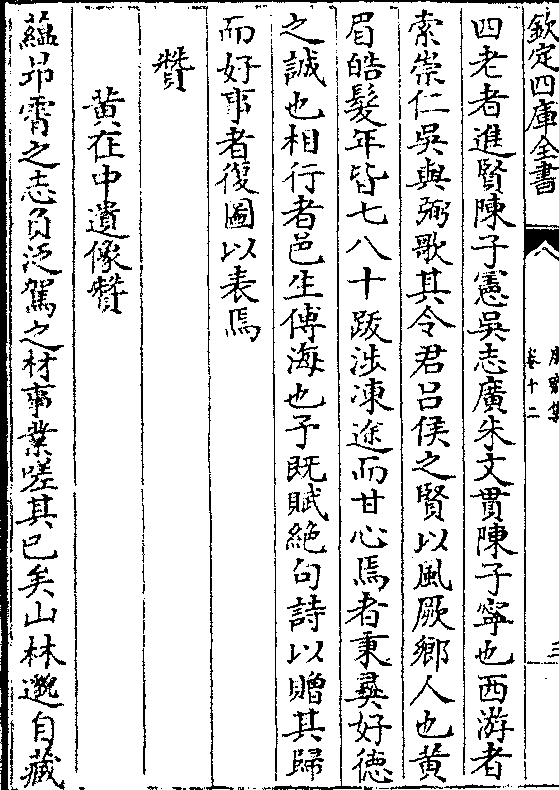 欽定四庫全書
卷十二
四老者進賢陳子憲吳志廣朱文貫陳子寧也西游者
索崇仁吳與弼歌其令君吕侯之賢以風厥鄉人也黄
眉皓髮年皆七八十跋涉凍途而甘心焉者秉彛好徳
之誠也相行者邑生傅海也予既賦絶句詩以贈其歸
而好事者復圖以表焉
贊
黄在中遺像贊
蘊昂霄之志負泛駕之材事業嗟其已矣山林邈自藏